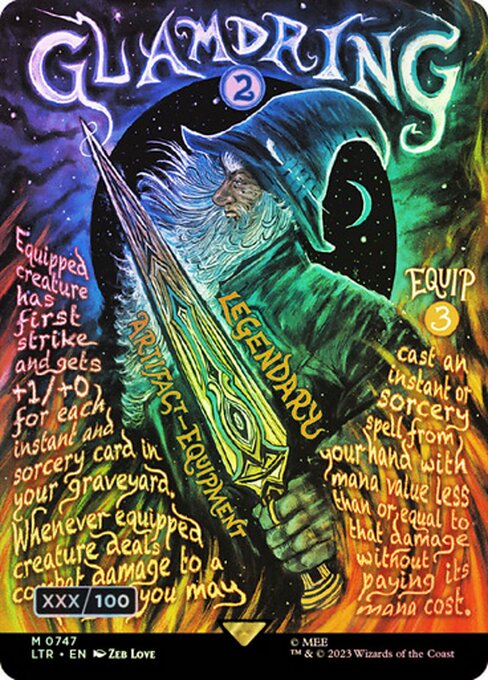 GLAMDRING
2
Equipped
creature
has
first
strike
and gets
+1/+0
for each
instant and
sorcery card in
your graveyard.
Whenever equipped
creature deals
combat damage to a
you may
LEGENDARY
ARTIFACT-EQUIPMENT
EQUIP
3
cast an
instant or
sorcery
spell from
your hand with
mana value less
than or equal to
that damage
without
paying its
mana cost.
XXX/100
M 0747
LTR • EN Zeb Love
© MEE
™ & © 2023 Wizards of the Coast